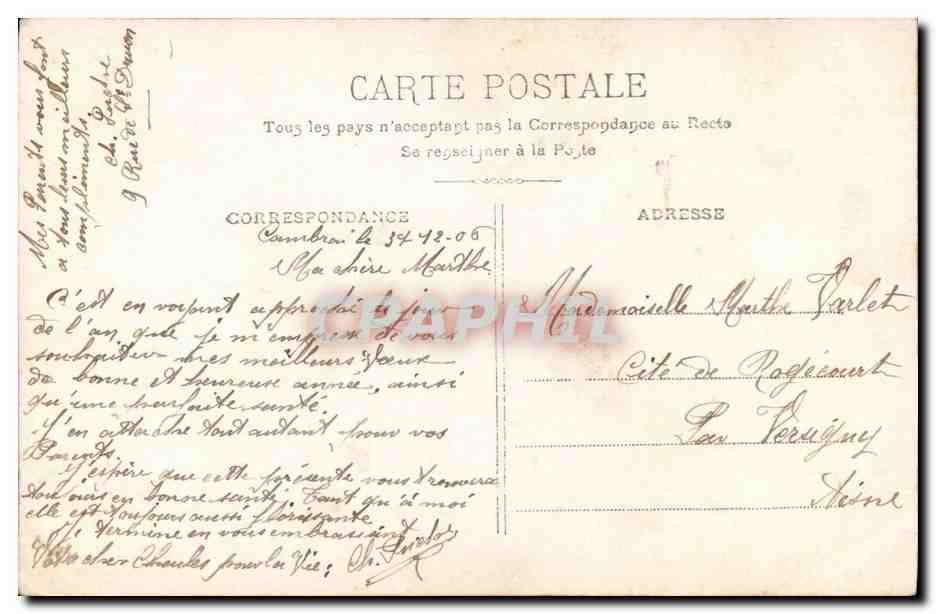 CARTE POSTALE
Tous les pays n'acceptent pas la Correspondance au Recto
Se renseigner à la Poste
CORRESPONDANCE
ADRESSE
Mes Parents vous font
a tous leurs meilleurs
compliments.
Ch.
9 Rue de St Druon
Cambrai le 31-12-06
Ma chère Marthe
C'est en voyant approcher le jour
de l'an, que je m'empresse de vous
souhaiter mes meilleurs Vœux
de bonne et heureuse année, ainsi
qu'une parfaite santé.
J'en attache tout autant pour vos
Parents.
J'espère que cette présente vous trouvera
toujours en bonne santé. Tant qu'à moi
elle est toujours aussi florissante
Je termine en vous embrassant
Votre cher Charles pour la Vie; Ch.
Mademoiselle Marthe Varlet
Cité de Rogécourt
Par Versigny
Aisne
CPAPHIL